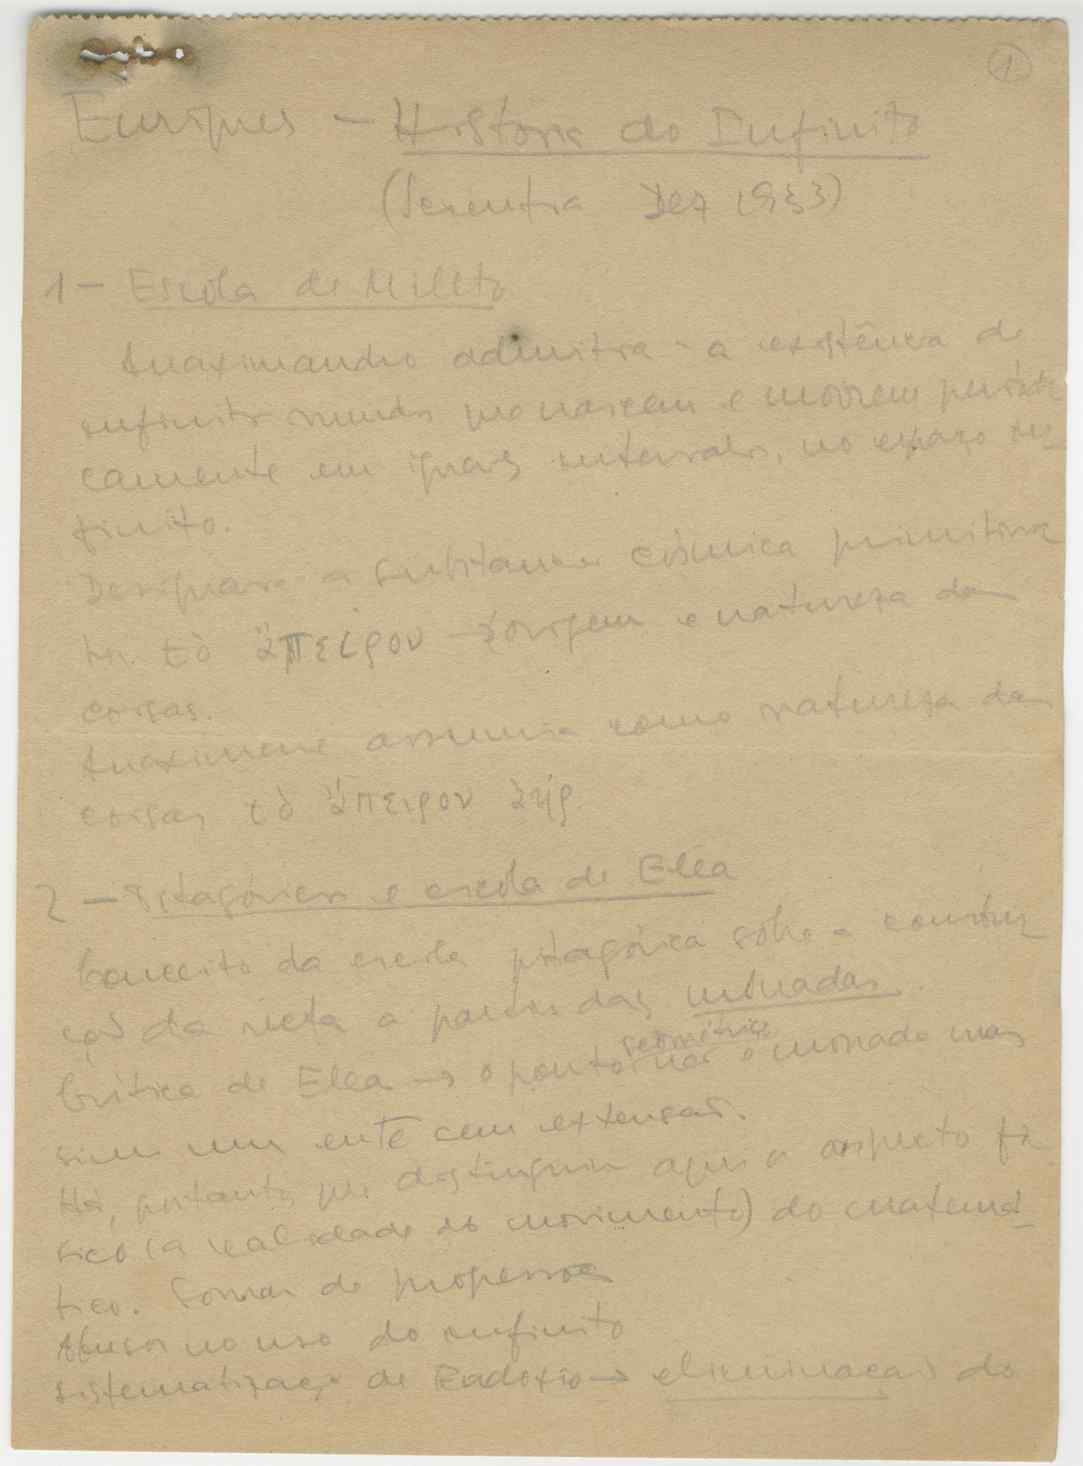 1
Enriques - História do Infinito
(Scientia Dez 1933)
1 - Escola de Mileto
Anaximandro admitia a existência de
infinitos mundos que nascem e morrem periòdi
camente em iguais intervalos, no espaço in-
finito.
Designava a substancia cósmica primitiva
por τὸ ἄπειρον → origem e natureza das
coisas.
Anaximene assumia como natureza das
coisas τὸ ἄπειρον ἀήρ
2 - Pitagóricos e escola de Elea
Conceito da escola pitagórica sôbre a constru
ção da recta a partir das mónadas.
geométrico
Crítica de Elea → o ponto não é monada mas
sim um ente sem extensão.
Há, portanto, que distinguir aqui o aspecto fí
sico (a realidade do movimento) do matemá-
tico. Somas de progressões
Abusos no uso do infinito
Sistematização de Eudoxio → eliminação do